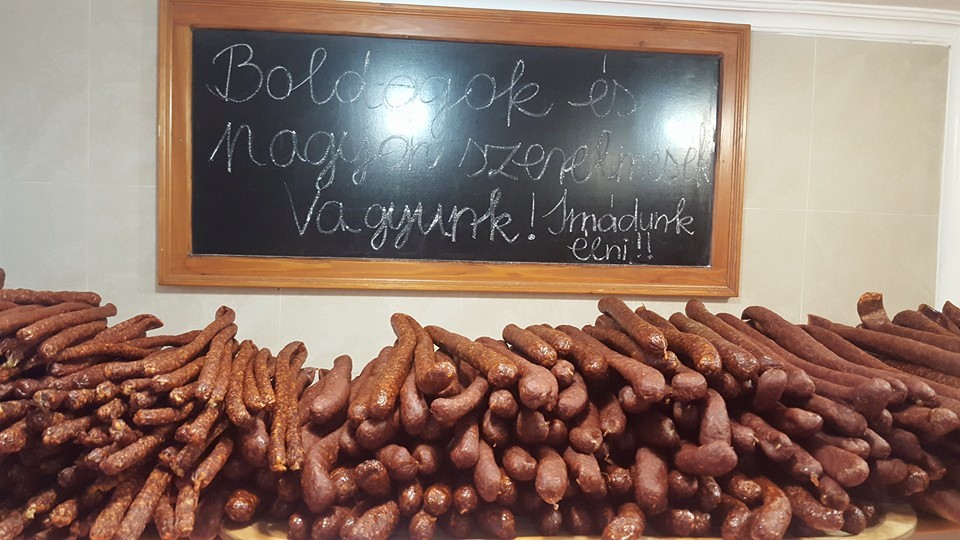 Boldogok és
nagyon szerelmesek
Vagyunk! Imádunk
élni!!